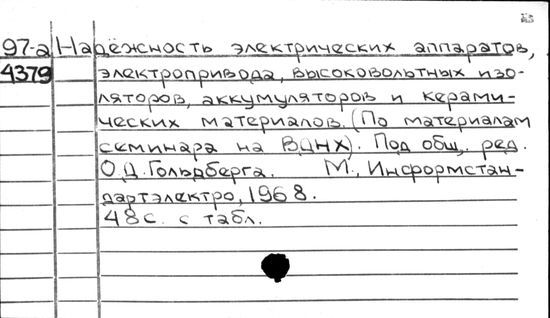 97-а Надёжность электрических аппаратов,
4379 электропривода, высоковольтных изо-
ляторов, аккумуляторов и керами-
ческих материалов. (По материалам
семинара на ВДНХ). Под общ. ред.
О.Д. Гольдберга. М., Информстан-
дартэлектро, 1968.
48 с. с табл.